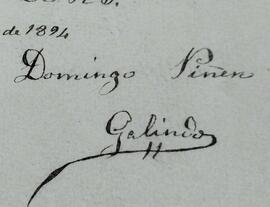 de 1894
Domingo Piñen
Galindo